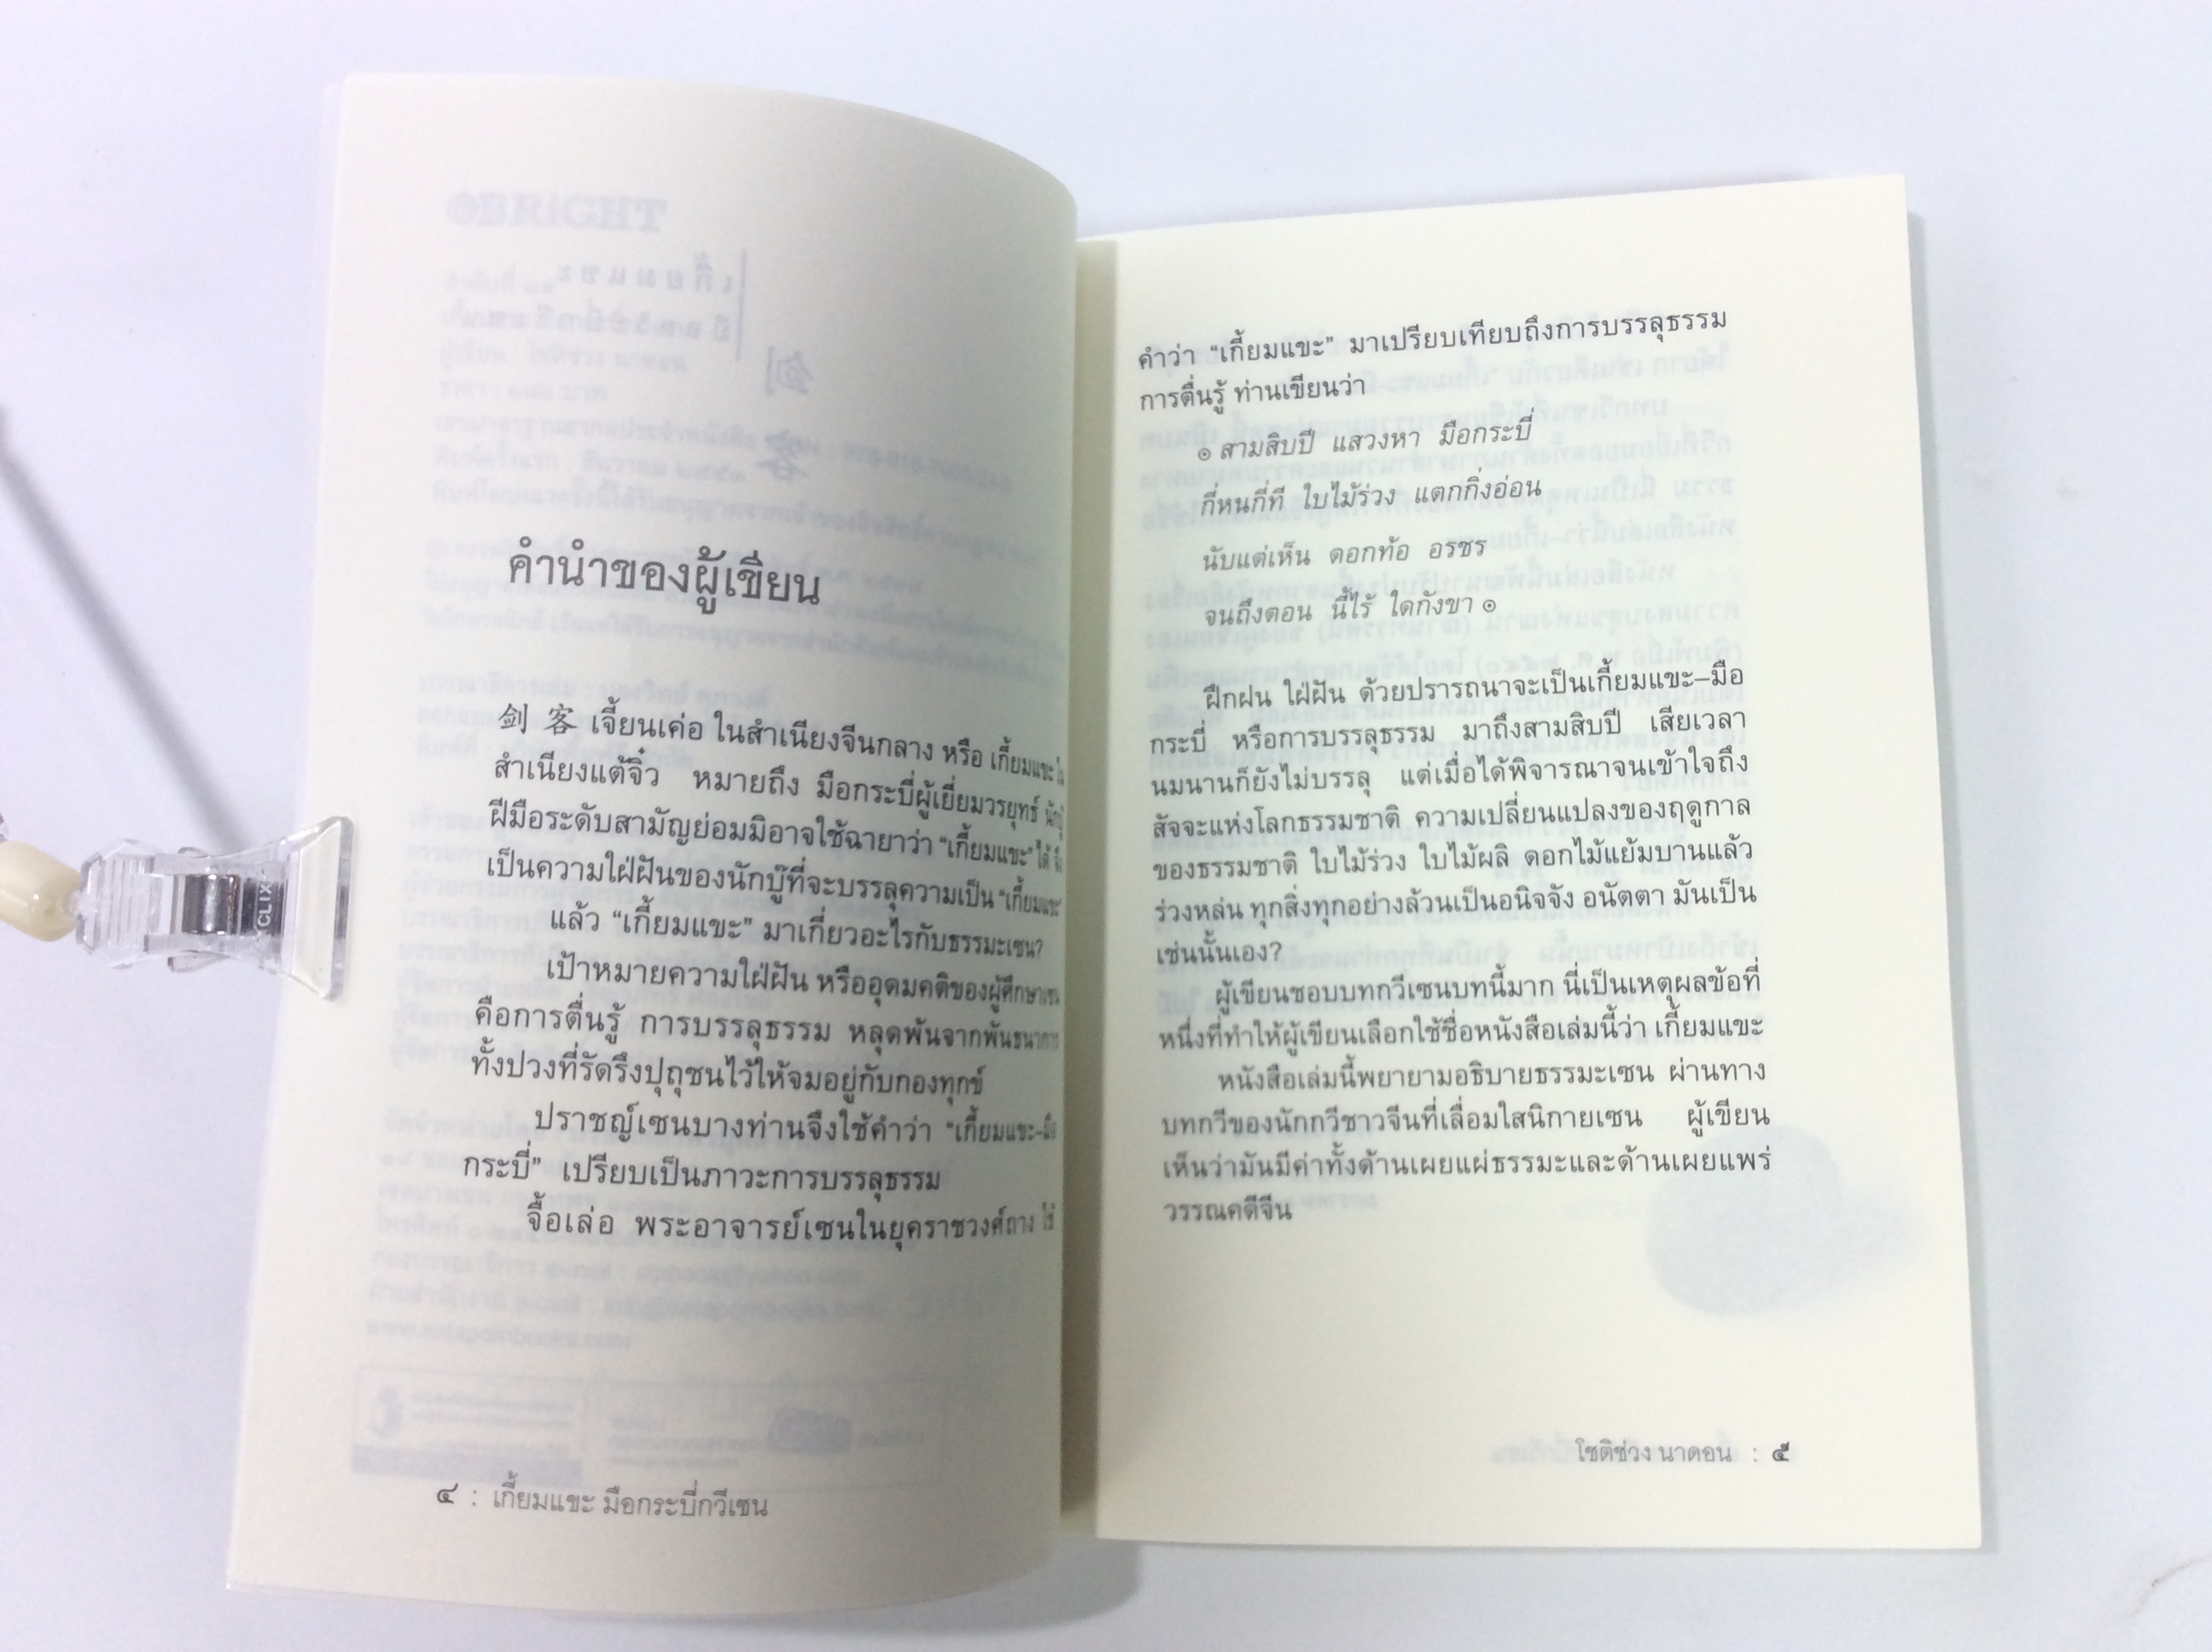 คำนำของผู้เขียน
剑 客 เจี้ยนเค่อ ในสำเนียงจีนกลาง หรือ เกี้ยมแขะ ใน
สำเนียงแต้จิ๋ว หมายถึง มือกระบี่ผู้เยี่ยมวรยุทธ์ นักบู๊
ฝีมือระดับสามัญย่อมมิอาจใช้ฉายาว่า “เกี้ยมแขะ” ได้ จึง
เป็นความใฝ่ฝันของนักบู๊ที่จะบรรลุความเป็น “เกี้ยมแขะ”
แล้ว “เกี้ยมแขะ” มาเกี่ยวอะไรกับธรรมะเซน?
เป้าหมายความใฝ่ฝัน หรืออุดมคติของผู้ศึกษาเซน
คือการตื่นรู้ การบรรลุธรรม หลุดพ้นจากพันธนาการ
ทั้งปวงที่รัดรึงปุถุชนไว้ให้จมอยู่กับกองทุกข์
ปราชญ์เซนบางท่านจึงใช้คำว่า “เกี้ยมแขะ–มือ
กระบี่” เปรียบเป็นภาวะการบรรลุธรรม
จื้อเล่อ พระอาจารย์เซนในยุคราชวงศ์ถาง ใช้
๔ : เกี้ยมแขะ มือกระบี่กวีเซน
คำว่า “เกี้ยมแขะ” มาเปรียบเทียบถึงการบรรลุธรรม
การตื่นรู้ ท่านเขียนว่า
๏ สามสิบปี แสวงหา มือกระบี่
กี่หนกี่ที ใบไม้ร่วง แตกกิ่งอ่อน
นับแต่เห็น ดอกท้อ อรชร
จนถึงตอน นี้ไร้ ใดกังขา ๏
ฝึกฝน ใฝ่ฝัน ด้วยปรารถนาจะเป็นเกี้ยมแขะ–มือ
กระบี่ หรือการบรรลุธรรม มาถึงสามสิบปี เสียเวลา
นมนานก็ยังไม่บรรลุ แต่เมื่อได้พิจารณาจนเข้าใจถึง
สัจจะแห่งโลกธรรมชาติ ความเปลี่ยนแปลงของฤดูกาล
ของธรรมชาติ ใบไม้ร่วง ใบไม้ผลิ ดอกไม้แย้มบานแล้ว
ร่วงหล่น ทุกสิ่งทุกอย่างล้วนเป็นอนิจจัง อนัตตา มันเป็น
เช่นนั้นเอง?
ผู้เขียนชอบบทกวีเซนบทนี้มาก นี่เป็นเหตุผลข้อที่
หนึ่งที่ทำให้ผู้เขียนเลือกใช้ชื่อหนังสือเล่มนี้ว่า เกี้ยมแขะ
หนังสือเล่มนี้พยายามอธิบายธรรมะเซน ผ่านทาง
บทกวีของนักกวีชาวจีนที่เลื่อมใสนิกายเซน ผู้เขียน
เห็นว่ามันมีค่าทั้งด้านเผยแผ่ธรรมะและด้านเผยแพร่
วรรณคดีจีน
โชติช่วง นาดอน : ๕
CLIX